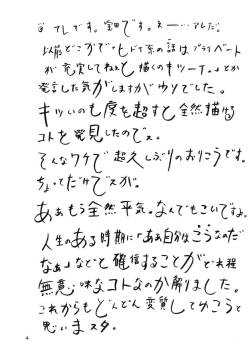 アレです。宝田です。え——…アレだ。
以前どこかで、もドす系の話はプライベート
が充実してねぇと描くのキツーナ。とか
発言した気がしますがウソでした。
キツいのも度を超すと全然描ける
コトを発見したのでえ。
そんなワケで超久しぶりのおりこうです。
ちょってだけでスが。
あぁもう全然平気。なんでもこいですよ。
人生のある時期に「あぁ自分はこうなのだ
なぁ」などと確信することがどれ程
無意味なコトなのか解りました。
これからもどんどん変質してゆこうと
思いまスタ。
4